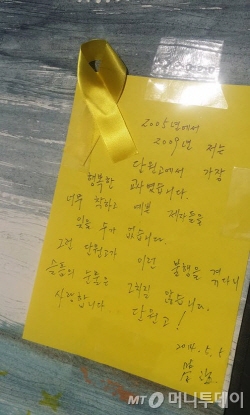 2005년에서
2009년 저는
단원고에서 가장
행복한 교사였습니다.
너무 착하고 예쁜 제자들을
잊을 수가 없습니다.
그런 단원고가 이런 불행을 겪다니
슬픔의 눈물은 그치질 않습니다.
사랑합니다 단원고!
2014. 5. 5
MT 머니투데이